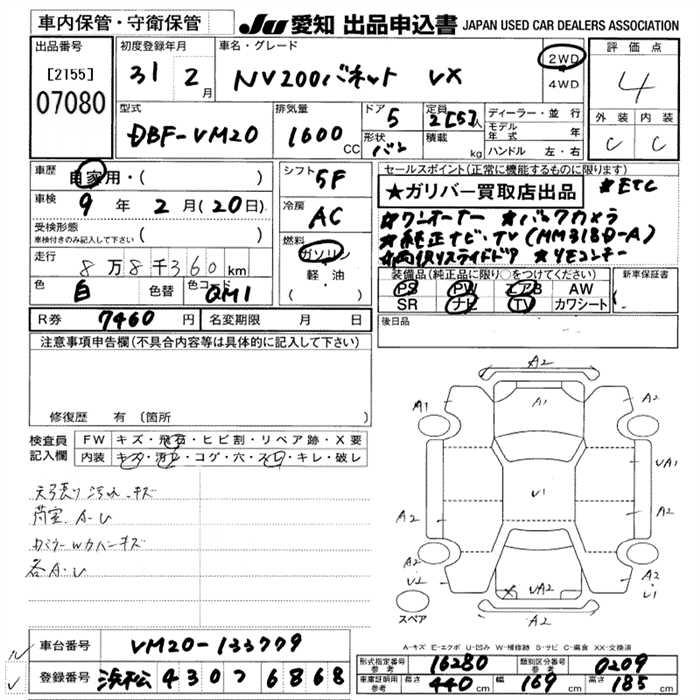 車内保管・守衛保管
JU 愛知 出品申込書 JAPAN USED CAR DEALERS ASSOCIATION
出品番号
[2155]
07080
初度登録年月
31 年 2 月
車名・グレード
NV200バネット VX
2WD
4WD
評価点
4
外装 内装
C C
型式
DBF-VM20
排気量
1600 CC
ドア
5
形状
バン
定員
2[5]人
積載
kg
ディーラー・並行
モデル年式 年
ハンドル 左・右
車歴
自家用・( )
車検
9 年 2 月(20日)
受検形態
車検付きのみ記入して下さい ( )
走行
8万8千360km
色 白 色替 色コード QM1
シフト
5F
冷房
AC
燃料
ガソリン
軽・油
( )
セールスポイント(正常に機能するものに限ります)
★ガリバー買取店出品 ★ETC
★ワンオーナー ★バックカメラ
★純正ナビ・TV(MM318D-A)
★両側リスライドドア ★リモコンキー
装備品(純正品に限り○をつけてください) 新車保証書
PS PW エアB AW
SR ナビ TV カワシート
後日品
R券 7460 円 名変期限 月 日
注意事項申告欄(不具合内容等は具体的に記入して下さい)
修復歴 有 (箇所
検査員記入欄
FW キズ・飛石・ヒビ割・リペア跡・X要
内装 キズ・汚れ・コゲ・穴・スレ・キレ・破レ
天張り汚れ キズ
荷室 A-U
カバーWカバーキズ
各A・U
A2
A1
A1
A2
UA1
U1
A2
A2
A2
U2
UA2
A2
U1
X
A2
スペア
A-キズ E-エクボ U-凹み W-補修跡 S-サビ C-腐食 XX-交換済
車台番号 VM20-133779
登録番号 浜松 430 フ 6868
形式指定番号 参考 16280 類別区分番号 参考 0209
車庫証明用 参考 長さ 440 cm 幅 169 cm 高さ 185 cm